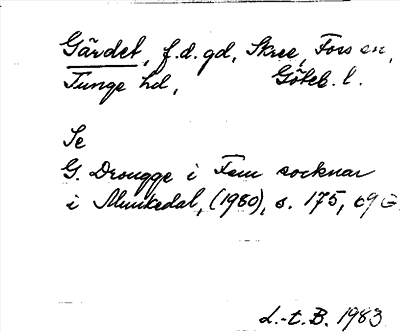 Gärdet, f.d. gd, Skree, Fors sn,
Tunge hd, Göteb. l.
Se
G. Drougge i Fem socknar
i Munkedal, (1980), s. 175, 69
L.-t. B. 1983